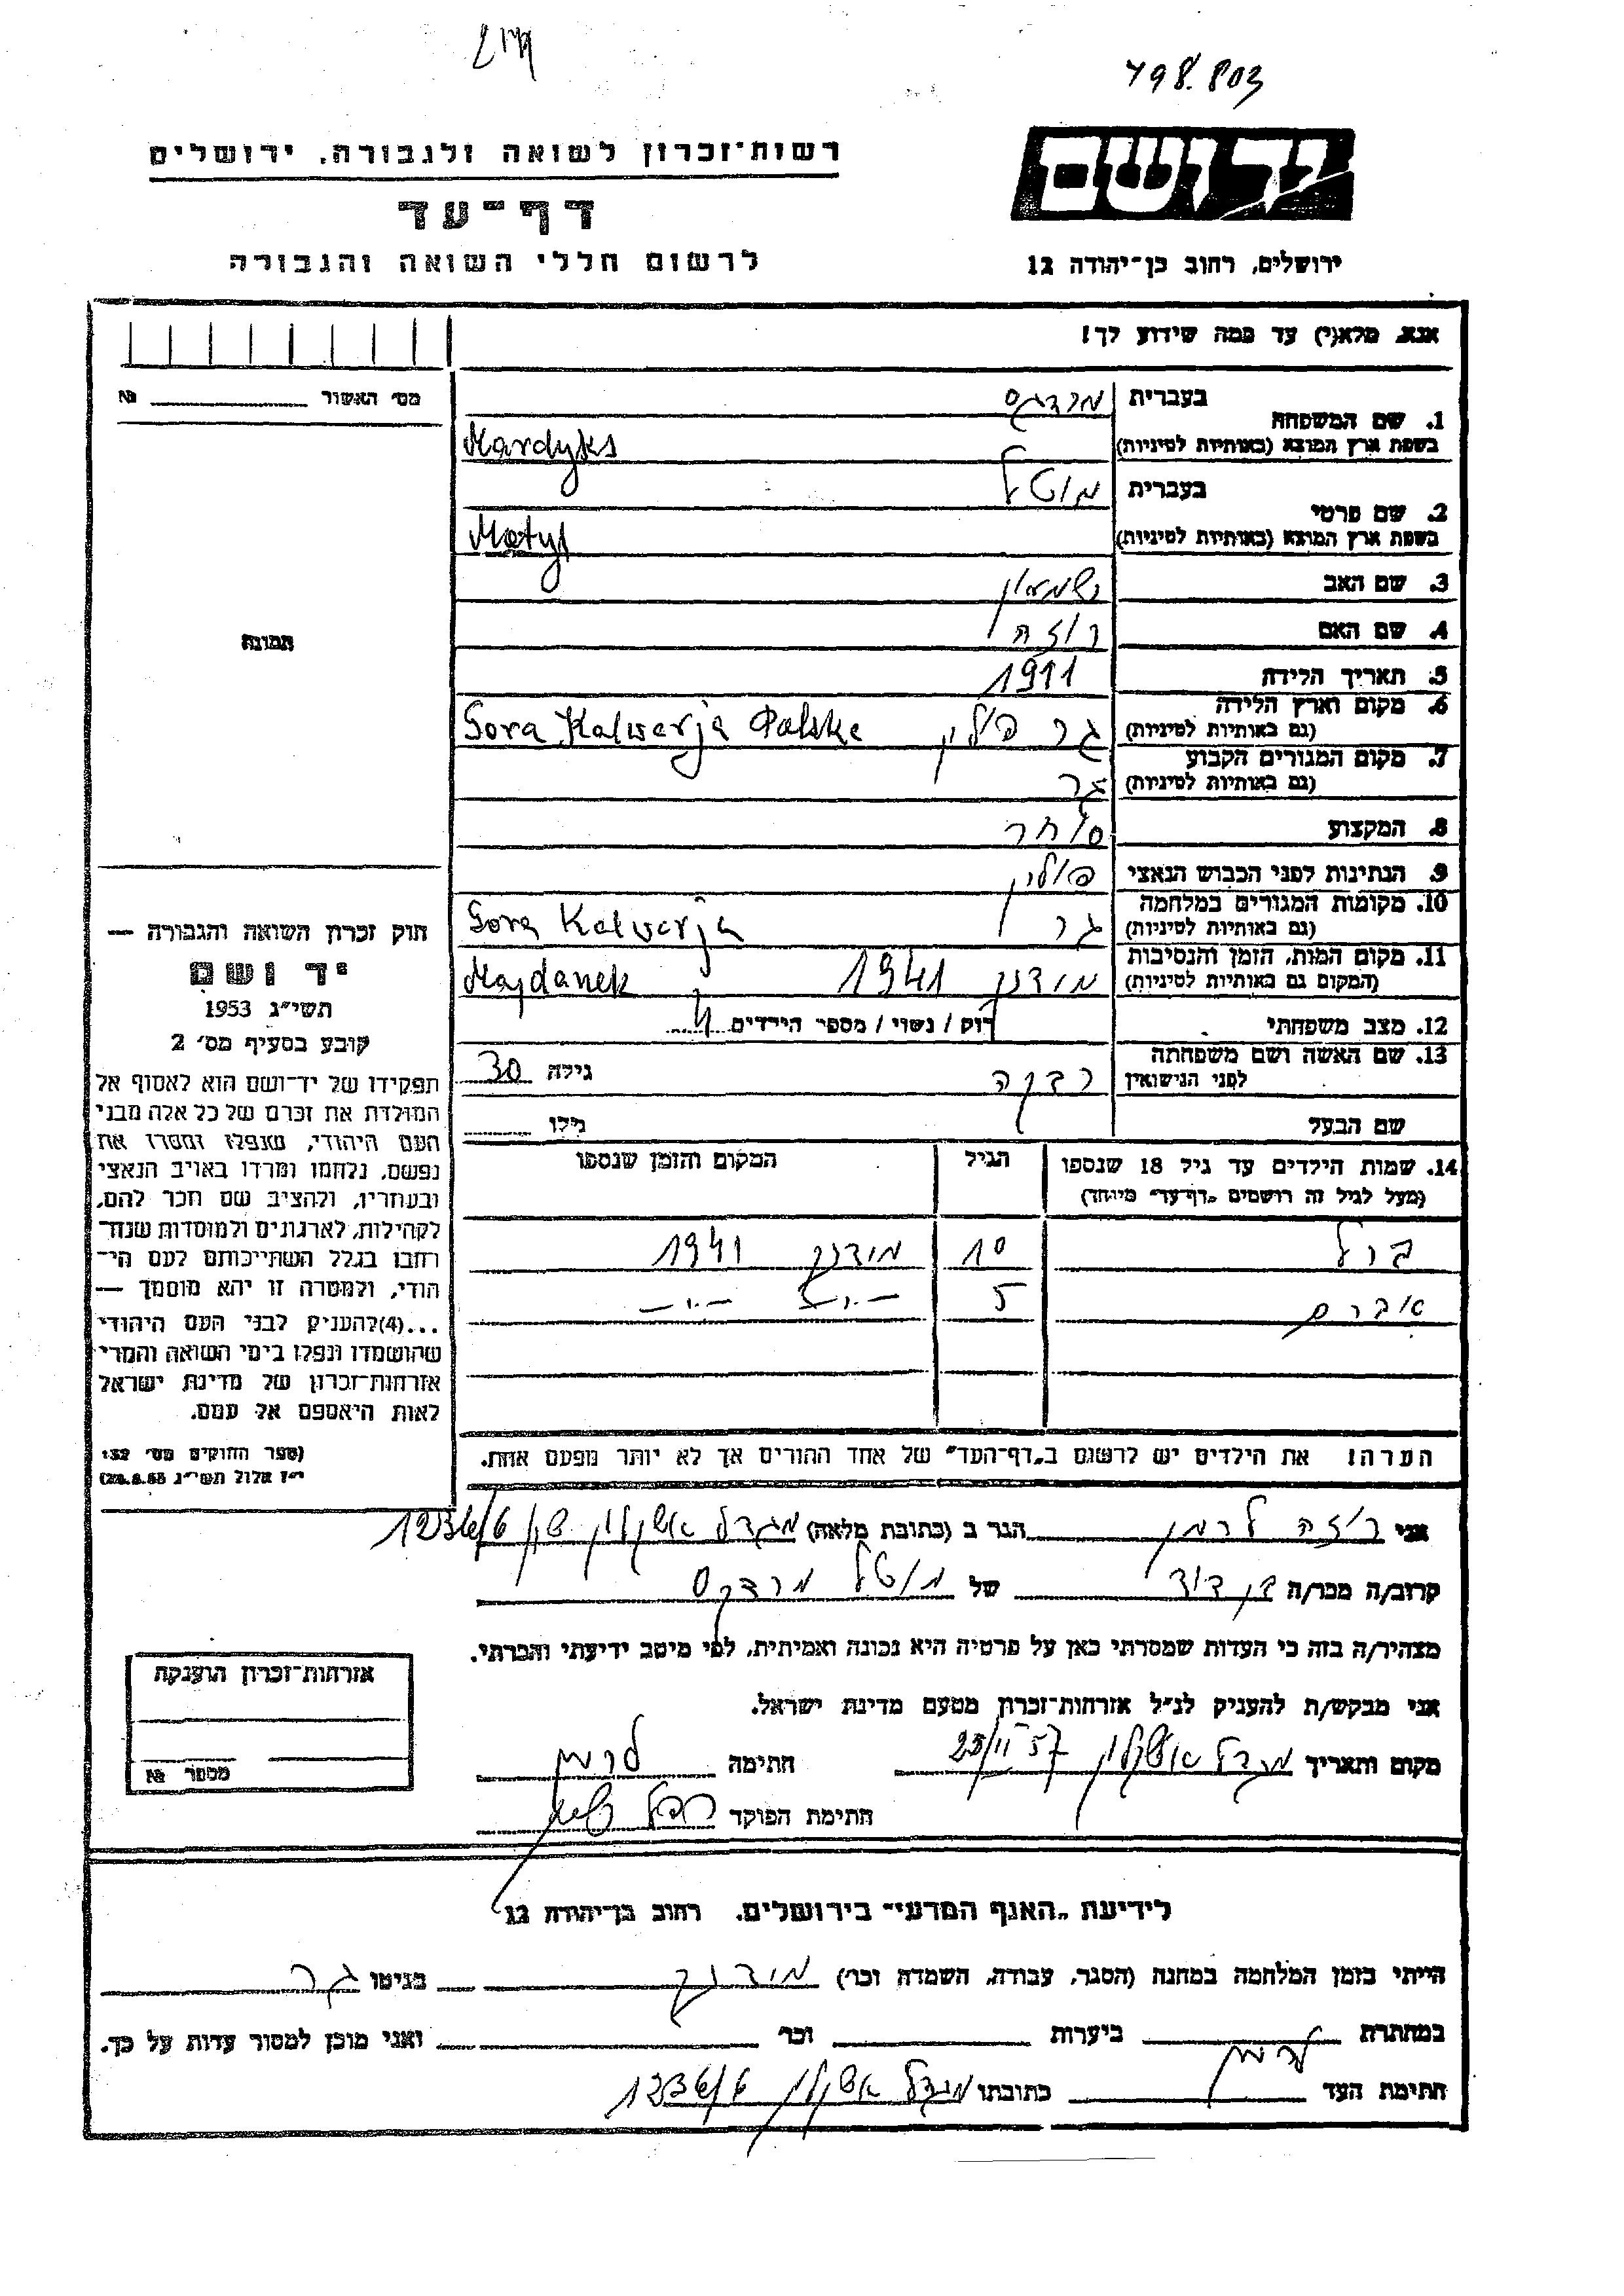 798.803
רשות־זכרון לשואה ולגבורה, ירושלים
דף־עד
לרשום חללי השואה והגבורה
יד ושם
ירושלים, רחוב בן־יהודה 12
אנא, מלא(י) עד כמה שידוע לך!
מס׳ האשור № 
1. שם המשפחה בעברית מרדקס
בשפת ארץ המוצא (באותיות לטיניות) Mardyks
2. שם פרטי בעברית מוטל
בשפת ארץ המוצא (באותיות לטיניות) Motyl
3. שם האב שמעון
4. שם האם רוזה
5. תאריך הלידה 1911
6. מקום וארץ הלידה (גם באותיות לטיניות) גר פולין Gora Kalwarja Polska
7. מקום המגורים הקבוע (גם באותיות לטיניות) גר
8. המקצוע סוחר
9. הנתינות לפני הכבוש הנאצי פולין
10. מקומות המגורים במלחמה (גם באותיות לטיניות) גר Gora Kalwarja
11. מקום המות, הזמן והנסיבות (המקום גם באותיות לטיניות) מידנק 1941 Majdanek
12. מצב משפחתי רוק / נשוי / מספר הילדים
13. שם האשה ושם משפחתה לפני הנישואין רבקה גילה 30
שם הבעל גילו
14. שמות הילדים עד גיל 18 שנספו הגיל המקום והזמן שנספו
(מעל לגיל זה רושמים „דף־עד״ מיוחד)
ברל 10 מידנק 1941
אברם 5 —״— —״—
הערה! את הילדים יש לרשום ב„דף־העד״ של אחד ההורים אך לא יותר מפעם אחת.
תמונה
חוק זכרון השואה והגבורה —
יד ושם
תשי״ג 1953
קובע בסעיף מס׳ 2
תפקידו של יד־ושם הוא לאסוף אל
המולדת את זכרם של כל אלה מבני
העם היהודי, שנפלו ומסרו את
נפשם, נלחמו ומרדו באויב הנאצי
ובעוזריו, ולהציב שם וזכר להם,
לקהילות, לארגונים ולמוסדות שנח־
רבו בגלל השתייכותם לעם הי־
הודי, ולמטרה זו יהא מוסמך —
...(4)להעניק לבני העם היהודי
שהושמדו ונפלו בימי השואה והמרי
אזרחות־זכרון של מדינת ישראל
לאות היאספם אל עמם.
(ספר החוקים מס׳ 132
י״ז אלול תשי״ג 28.8.53)
אני רוזה לרמן הגר ב (כתובת מלאה) מגדל אשקלון 1236/6
קרוב/ה מכר/ה בן דוד של מוטל מרדקס
מצהיר/ה בזה כי העדות שמסרתי כאן על פרטיה היא נכונה ואמיתית, לפי מיטב ידיעתי והכרתי.
אני מבקש/ת להעניק לנ״ל אזרחות־זכרון מטעם מדינת ישראל.
מקום ותאריך מגדל אשקלון 25/II 57 חתימה לרמן
חתימת הפוקד
אזרחות־זכרון הוענקה
מספר №
לידיעת „האגף המדעי״ בירושלים, רחוב בן־יהודה 12
הייתי בזמן המלחמה במחנה (הסגר, עבודה, השמדה וכו׳) מידנק בגיטו גר
במחתרת ביערות וכו׳ ואני מוכן למסור עדות על כך.
חתימת העד לרמן כתובתו מגדל אשקלון 1236/6